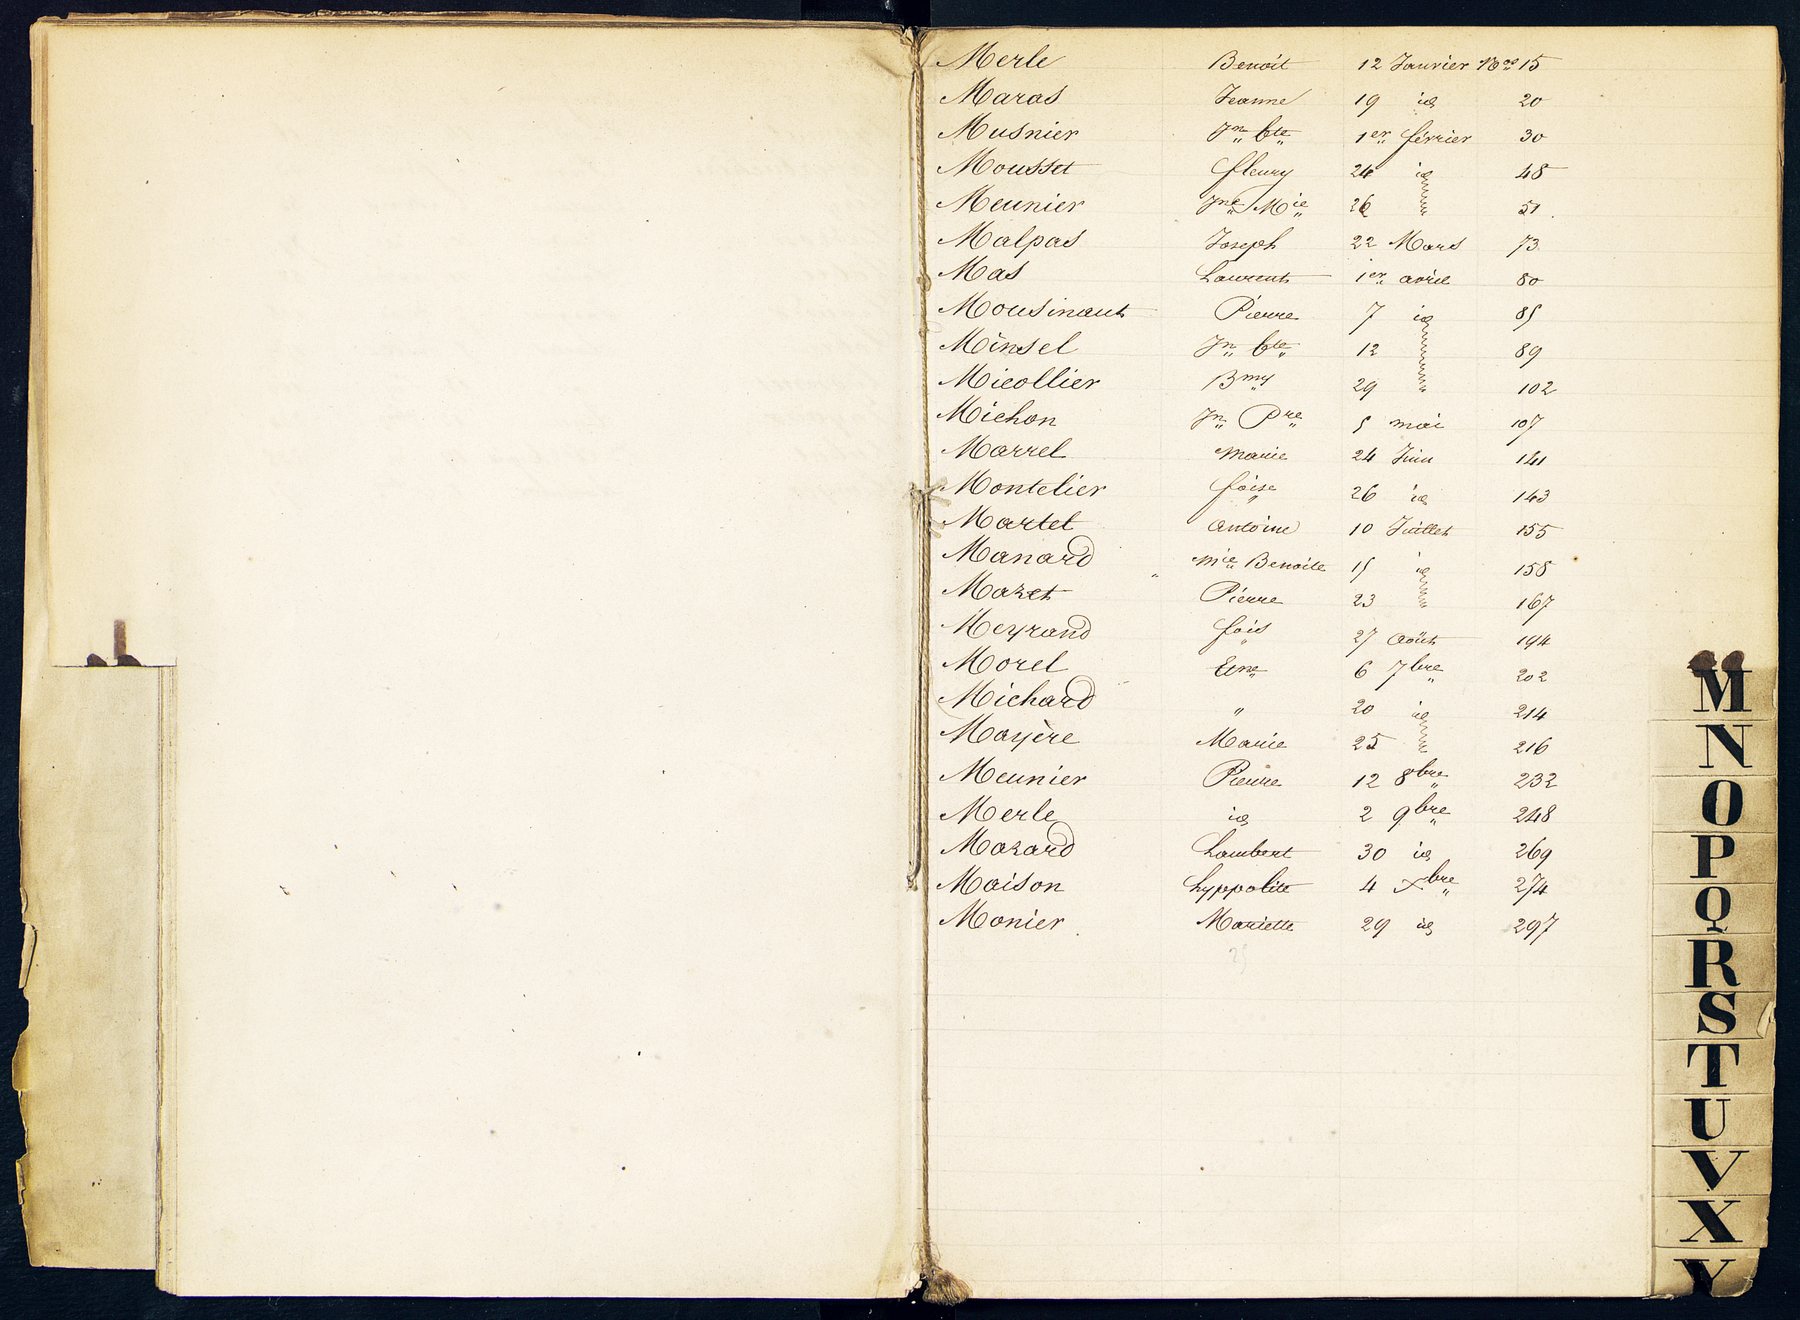 Merle Benoit 12 Janvier Nos 15
Maras Jeanne 19 id 20
Musnier Jn Bte 1er février 30
Mousset fleury 24 id 48
Meunier Jne Mie 26 " 51
Malpas Joseph 22 Mars 73
Mas Laurent 1er avril 80
Mousinaut Pierre 7 id 85
Minsel Jn Bte 12 " 89
Micollier Bmy 29 " 102
Michon Jn Pre 5 mai 107
Marrel Marie 24 Juin 141
Montelier foise 26 id 143
Martet Antoine 10 Juillet 155
Manard Mie Benoite 15 id 158
Mazet Pierre 23 " 167
Meyrand fois 27 Août 194
Morel Ene 6 7bre 202
Michard " 20 id 214
Mayère Marie 25 " 216
Meunier Pierre 12 8bre 232
Merle id 2 9bre 248
Mazard Lambert 30 id 269
Maison hyppolite 4 Xbre 274
Monier Mariette 29 id 297
25
M
N
O
P
Q
R
S
T
U
V
X
Y